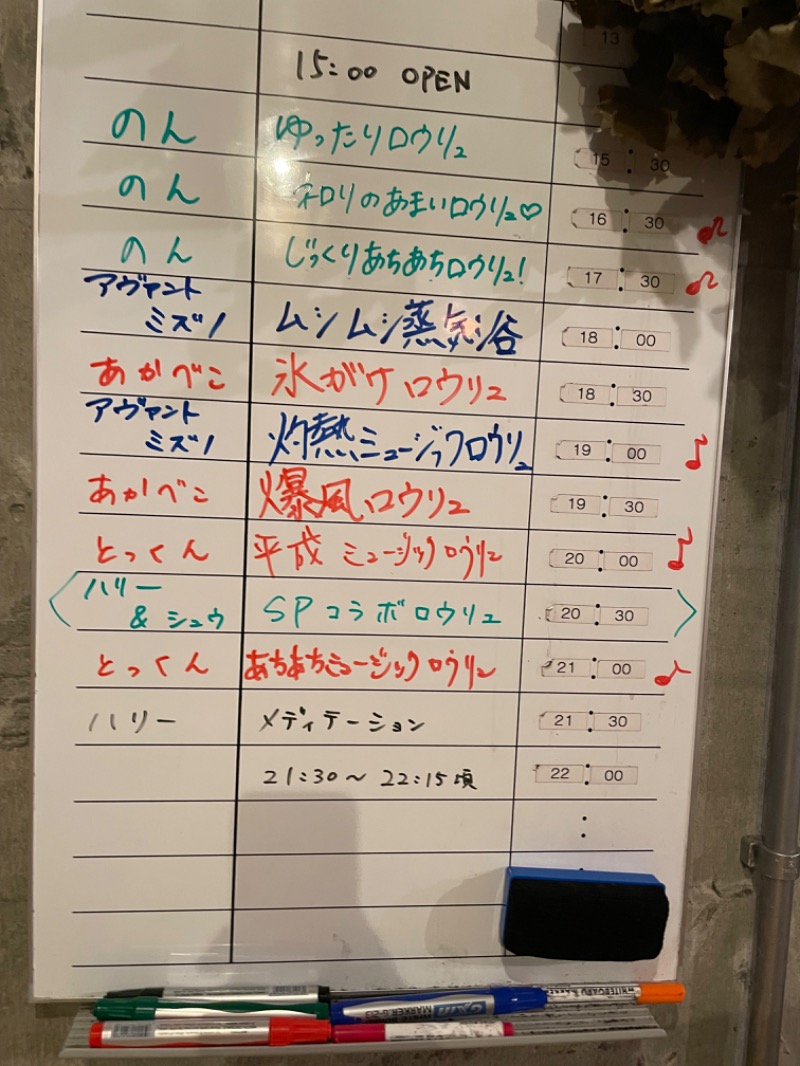 13
15:00 OPEN
のん ゆったりロウリュ 15:30
のん ネロリのあまいロウリュ♡ 16:30
のん じっくりあちあちロウリュ! 17:30
アヴァント
ミズノ ムシムシ蒸気浴 18:00
あかべこ 氷がけロウリュ 18:30
アヴァント
ミズノ 灼熱ミュージックロウリュ 19:00
あかべこ 爆風ロウリュ 19:30
とっくん 平成ミュージックロウリュ 20:00
ハリー
& シュウ SPコラボロウリュ 20:30
とっくん あちあちミュージックロウリュ 21:00
ハリー メディテーション 21:30
21:30〜22:15頃 22:00
:
WHITEBOARD
MARKER